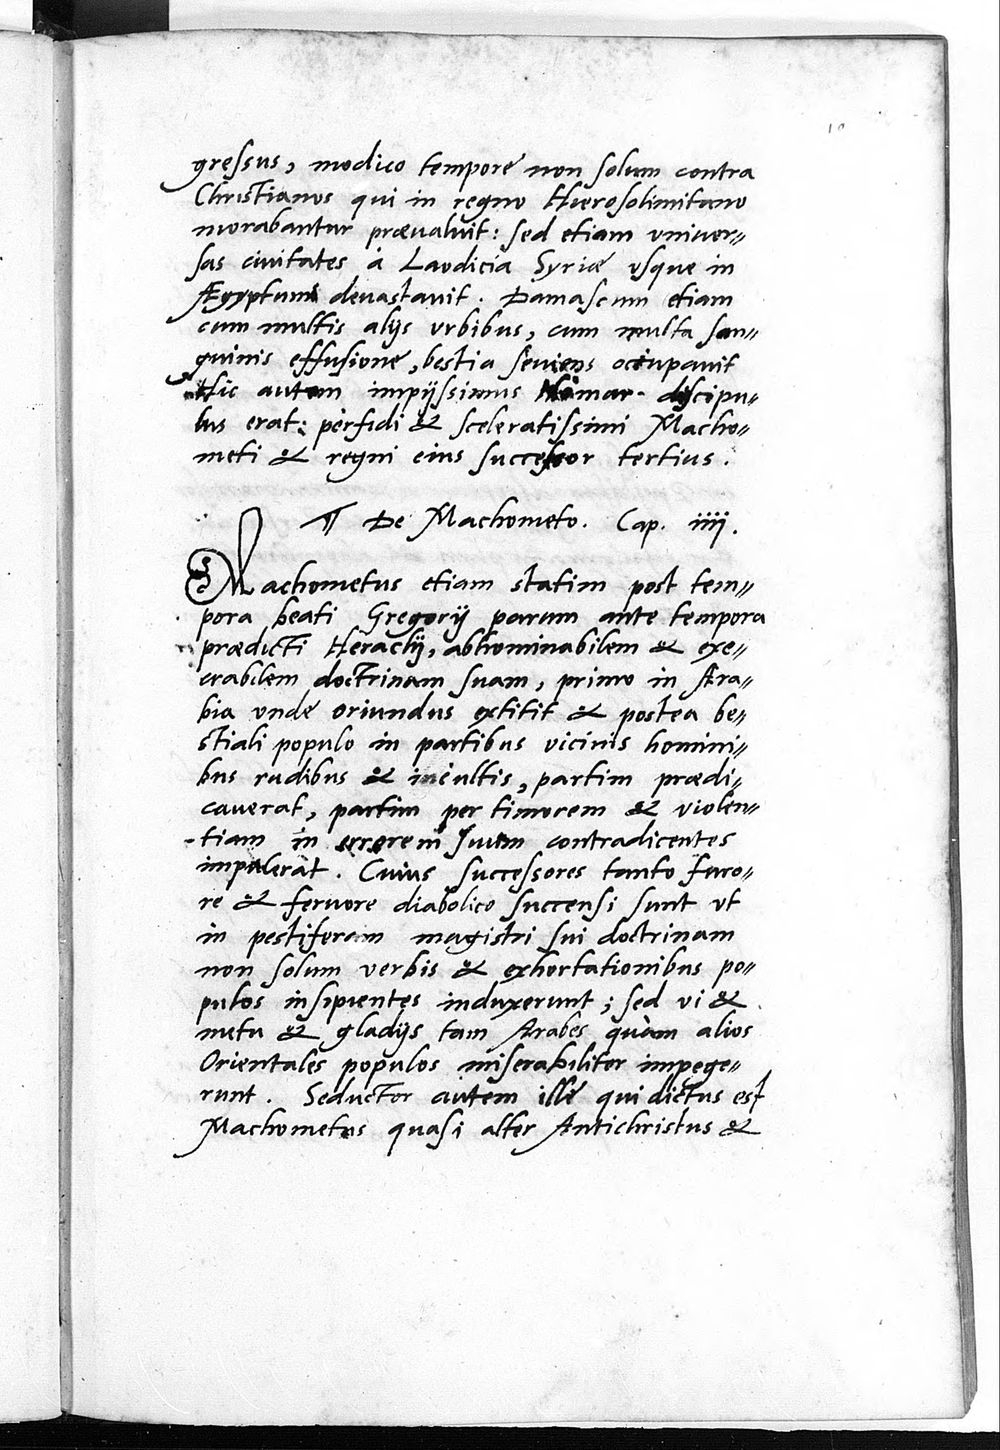 10
gressus, modico tempore non solum contra
Christianos qui in regno Hierosolimitano
morabantur prævaluit: sed etiam vniuer=
sas ciuitates à Laodicia Syriæ vsque in
Ægyptum deuastauit. Damascum etiam
cum multis alijs vrbibus, cum multa san=
guinis effusione, bestia seuiens occupauit
Hic autem impijssimus Homar discipu=
lus erat: perfidi & sceleratissimi Macho=
meti & regni eius successor tertius.
¶ De Machometo. Cap. iiij.
Machometus etiam statim post tem=
pora beati Gregorij parum ante tempora
prædicti Heraclij, abhominabilem & exe=
crabilem doctrinam suam, primo in Ara=
bia vnde oriundus extitit & postea be=
stiali populo in partibus vicinis homini=
bus rudibus & incultis, partim prædi=
cauerat, partim per timorem & violen=
tiam in errorem suum contradicentes
impulerat. Cuius successores tanto furo=
re & feruore diabolico succensi sunt vt
in pestiferam magistri sui doctrinam
non solum verbis & exhortationibus po=
pulos insipientes induxerunt; sed vi &
metu & gladijs tam Arabes quàm alios
Orientales populos miserabiliter impege=
runt. Seductor autem ille qui dictus est
Machometus quasi alter Antichristus &